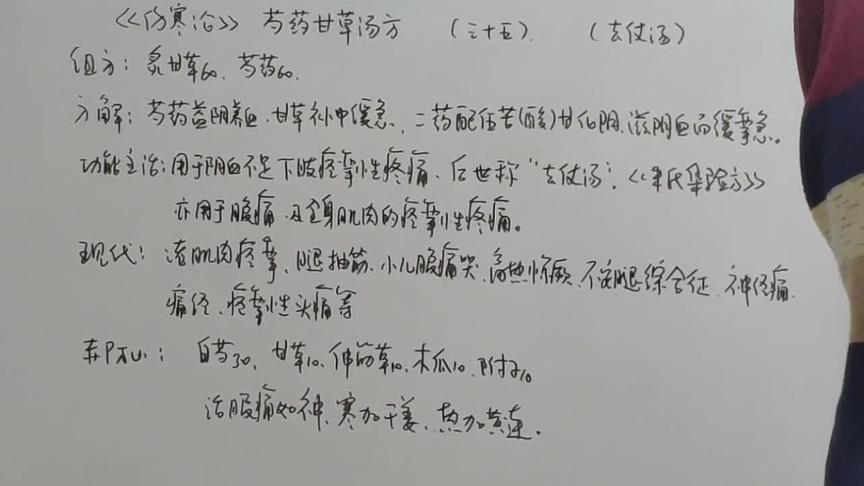 《伤寒论》 芍药甘草汤方 （三十五）. （去仗汤）
组方：炙甘草60、芍药60.
方解：芍药益阴养血、甘草补中缓急、二药配伍苦(酸)甘化阴、滋阴血而缓挛急。
功能主治：用于阴血不足下肢痉挛性疼痛、后世称“去仗汤”.《 氏集验方》
亦用于腹痛、及全身肌肉的痉挛性疼痛。
现代：治肌肉痉挛、腿抽筋、小儿腹痛哭、高热惊厥、不安腿综合征、神经痛、
痛经、痉挛性头痛等
白芍30、甘草10、伸筋草10、木瓜10、附子10
治腹痛如神、寒加干姜、热加黄连.